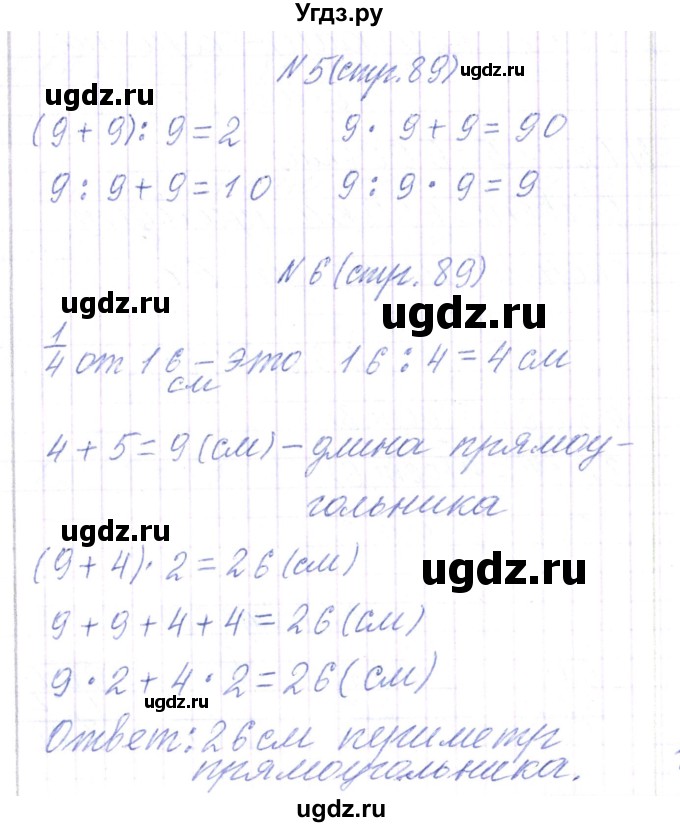 Угдз.ру
N 5 (стр. 89)
ugdz.ru
(9 + 9) : 9 = 2 9 · 9 + 9 = 90
9 : 9 + 9 = 10 9 : 9 · 9 = 9
ugdz.ru
N 6 (стр. 89)
ugdz.ru
ugdz.ru
1/4 от 16 см – это 16 : 4 = 4 см
4 + 5 = 9 (см) – длина прямоу-
гольника
ugdz.ru
(9 + 4) · 2 = 26 (см)
ugdz.ru
9 + 9 + 4 + 4 = 26 (см)
9 · 2 + 4 · 2 = 26 (см)
ugdz.ru
Ответ: 26 см периметр
прямоугольника.
ugdz.ru